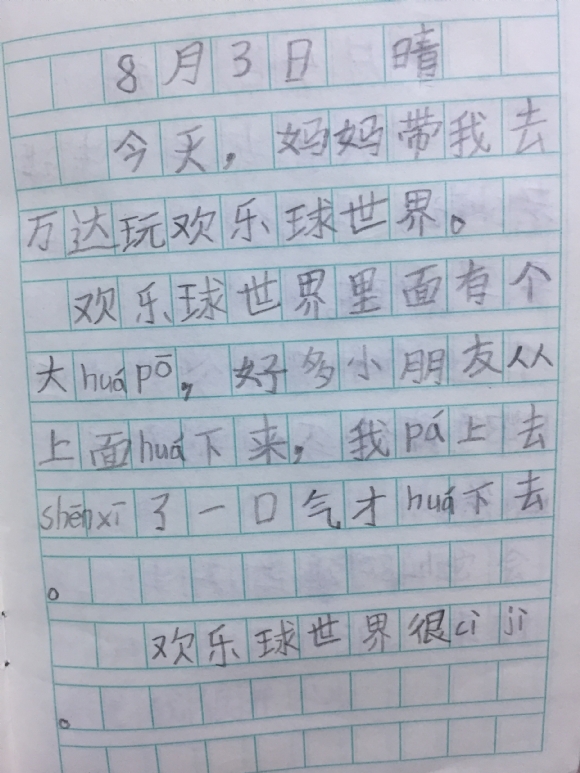 8月3日 晴
今天，妈妈带我去
万达玩欢乐球世界。
欢乐球世界里面有个
大huápō，好多小朋友从
上面huá下来，我pá上去
shēnxī了一口气才huá下去
。
欢乐球世界很cì jī
。